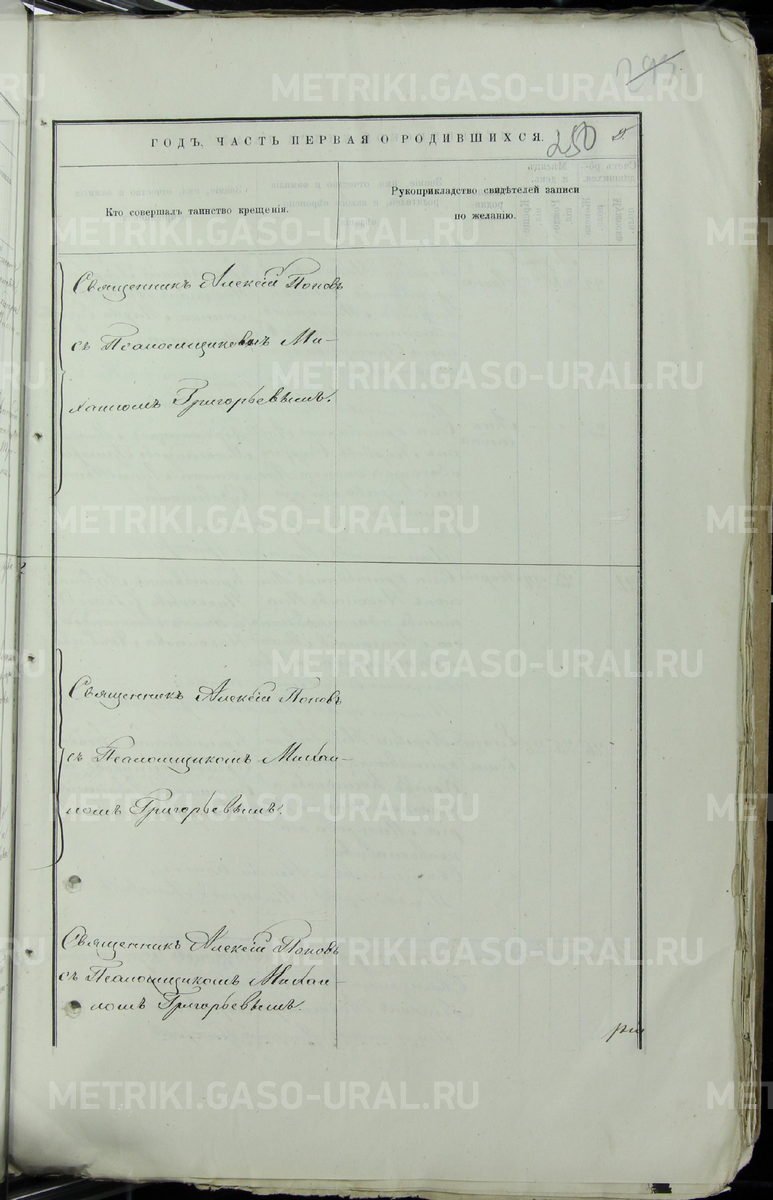 METRIKI.GASO-URAL.RU
250
ГОДЪ, ЧАСТЬ ПЕРВАЯ О РОДИВШИХСЯ.
Кто совершалъ таинство крещенія.
Рукоприкладство свидѣтелей записи
по желанію.
Священникъ Алексій Поповъ
съ Псаломщикомъ Ми-
хаиломъ Григорьевымъ.
Священникъ Алексій Поповъ
съ Псаломщикомъ Михаи-
ломъ Григорьевымъ.
Священникъ Алексій Поповъ
съ Псаломщикомъ Михаи-
ломъ Григорьевымъ.